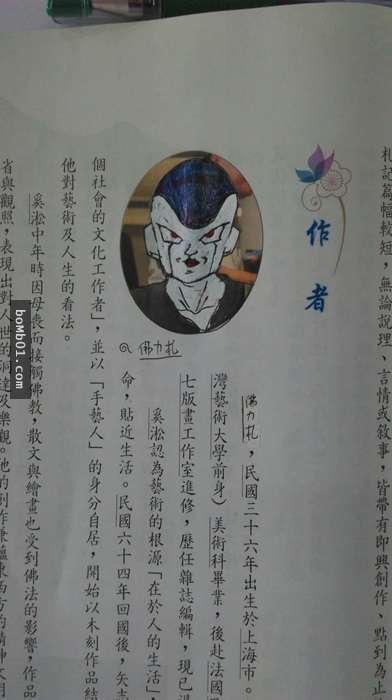 札記篇幅較短，無論說理、言情或敘事，皆帶有即興創作、點到為
作者
佛力札，民國三十六年出生於上海市。
灣藝術大學前身）美術科畢業，後赴法國
七版畫工作室進修，歷任雜誌編輯，現已
奚淞認為藝術的根源「在於人的生活」，
命，貼近生活。民國六十四年回國後，矢志
@佛力札
個社會的文化工作者」，並以「手藝人」的身分自居，開始以木刻作品結
他對藝術及人生的看法。
奚淞中年時因母喪而接觸佛教，散文與繪畫也受到佛法的影響，作品
省與觀照，表現出對人世的洞達及樂觀。他的創作兼融東西方的精神文
bomb01.com